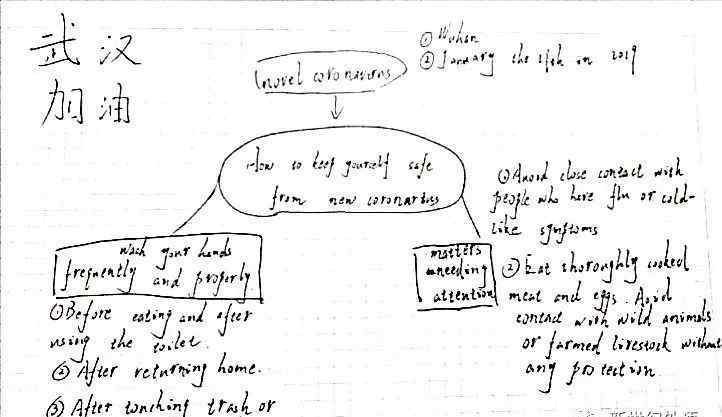 武汉
加油
novel coronavirus
① Wuhan
② January the in 2019
How to keep yourself safe
from new coronavirus
wash your hands
frequently and properly
① Before eating and after
using the toilet.
② After returning home.
③ After touching trash or
matters
needing
attention
① Avoid close contact with
people who have flu or cold-
like symptoms
② Eat thoroughly cooked
meat and eggs. Avoid
contact with wild animals
or farmed livestock without
any protection.